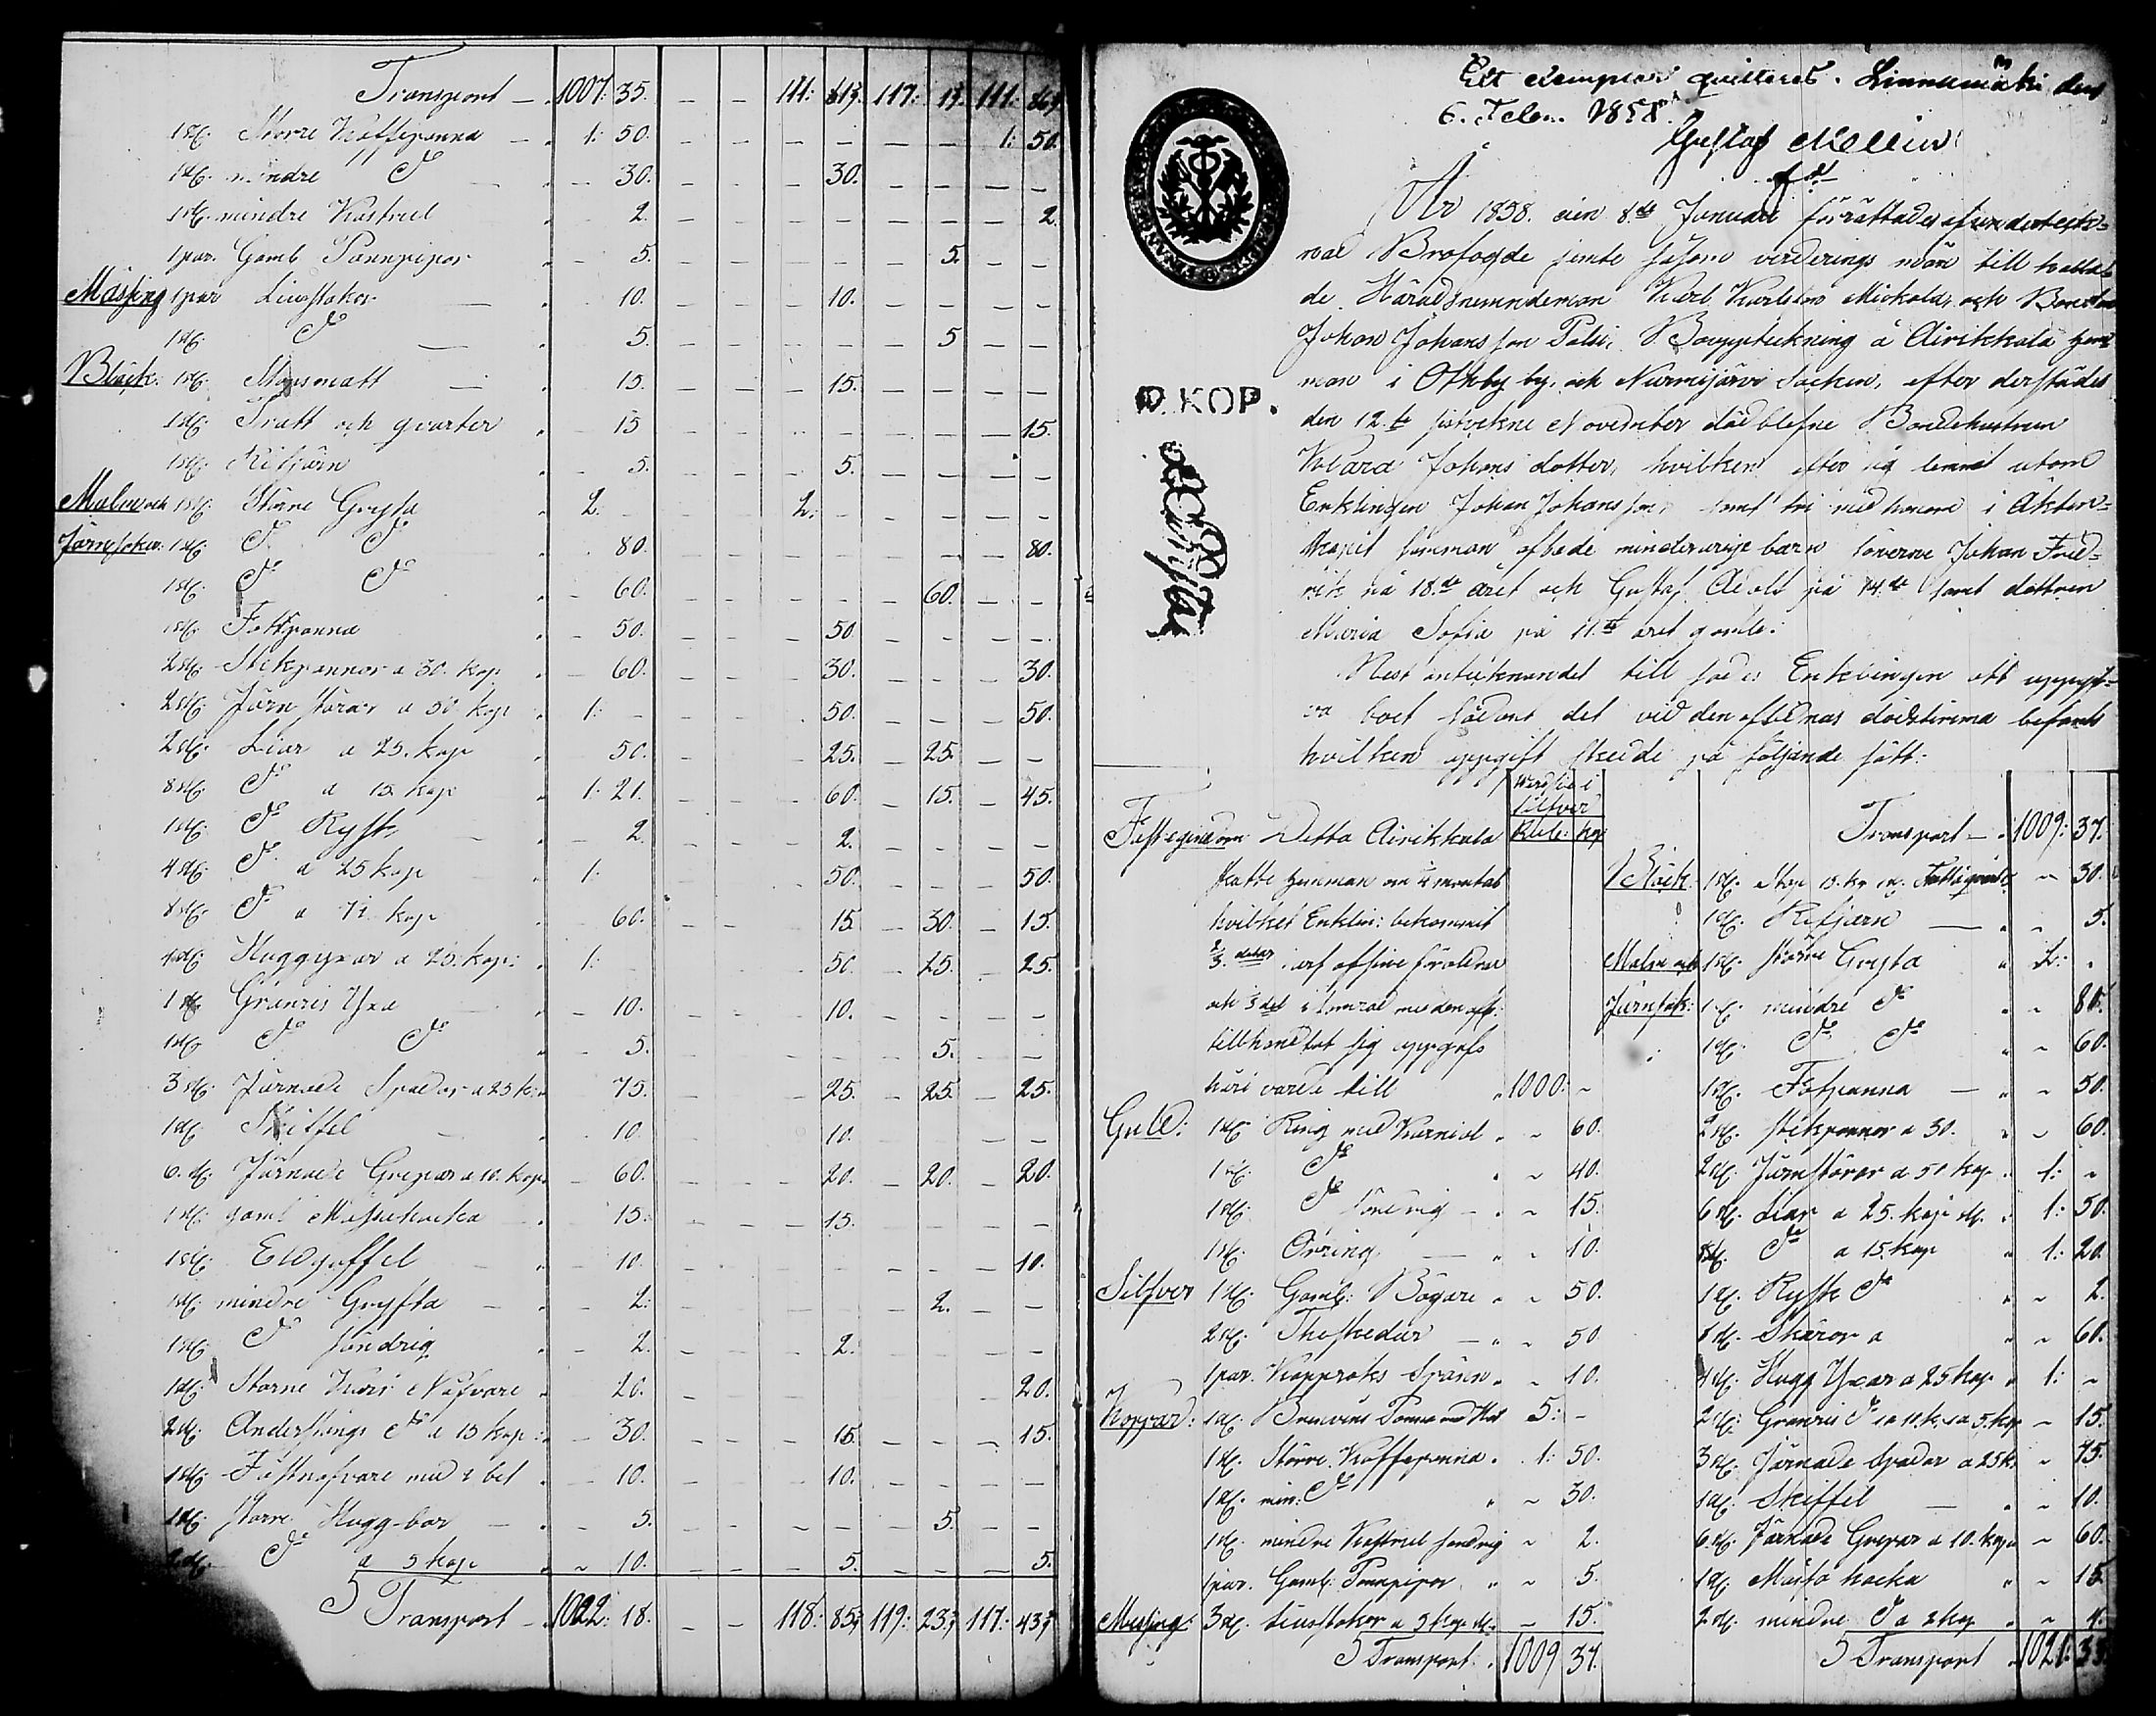 Transport 1007: 35. — — 111: 61⅓. 117: 13. 111: 86⅓
1 st: Större Kaffepanna 1: 50. — — — — — — 1: 50.
1 st: mindre Do 30. — — — 30. — — — —
1 st: mindre Kastrul 2. — — — — — — — 2.
1 par. Gamb Pannpipor 5. — — — — — 5. — —
Mässing 1 par Liusstakor 10. — — — 10. — — — —
1 st: Do 5. — — — — — 5 — —
Bläck: 1 st: 15. — — — 15. — — — —
1 st: Tratt och qvarter 15 — — — — — — — 15.
1 st: Rifjärn 5. — — — 5. — — — —
Malm och 1 st: Större Gryta 2: — — 2: — — — — —
Järnsaker: 1 st: Do Do 80. — — — — — — — 80.
1 st: Do Do 60. — — — — — 60. — —
1 st: Fotpanna 50. — — — 50. — — — —
2 st: Stekpannor a 30. kop 60. — — — 30. — — — 30.
2 st: Järn störar a 50 kop 1: — — — 50. — — — 50.
2 st: Liar a 25. kop 50. — — — 25. — 25. — —
8 st: Do a 15. kop 1: 21. — — — 60. — 15. — 45.
1 st: Do Rysk 2. — — — 2. — — — —
4 st: Do a 25 kop 1: — — — 50. — — — 50.
8 st: Do a 7½ kop 60. — — — 15. — 30. — 15.
4 st: Huggyxar a 25. kop: 1: — — — 50. — 25. — 25.
1 st: Granris Yxa 10. — — — 10. — — — —
1 st: Do Do 5. — — — — — 5. — —
3 st: Järnade Spadar a 25 k: 75. — — — 25. — 25. — 25.
1 st: Skiffel 10. — — — 10. — — — —
6. st: Järnade Grepar a 10. kop. 60. — — — 20. — 20. — 20.
1 st: gaml Måssahacka 15. — — — 15. — — — —
1 st: Eldgaffel 10. — — — — — — — 10.
1 st: mindre Gryta 2. — — — — — 2. — —
1 st: Do söndrig 2. — — — 2. — — — —
1 st: Storre Nafvare 20. — — — — — — — 20.
2 st: Do a 15 kop: 30. — — — 15. — — — 15.
1 st: Fästnafvare med 2 bet 10. — — — 10. — — — —
1 st: större Hugg-bor 5. — — — — — 5. — —
2 st: Do a 5 kop 10. — — — 5. — — — 5.
Transport 1022: 18. — — 118: 85⅔ 119: 23⅓ 117: 43⅓
Ett exemplar qvitteras. Linnamäki den
6. Febr. 1858.
Gustaf Mellin
År 1858. den 8de Januari förrättades af underteck=
nad Brofogde jemte såsom värderings män till kallade
de Häradsnemndeman Karl Karlsson Mickola, och Bonden
Johan Johansson Palsi, Bouppteckning å Airikkala hem
man i Othby by, och Nurmijärvi Socken, efter derstädes
den 12.te sistvekne November död blefne Bondehustrun
Johans dotter, hvilken efter sig lemnat utom
Enklingen Johan Johansson, samt tre med honom i Äkten=
skapet sammanaflade minderårige barn sönerne Johan Fred=
rik på 18.de året och Gustaf Adolf på 14.de samt dottren
Maria Sofia på 11.te året gamle.
Näst antecknandet till sades Enklingen att uppgif=
va boet sådant det vid den aflidnas dödstimma befants
hvilken uppgift skedde på följande sätt:
D. KOP.
Värdet i
Silfver
Rub: kop
Fastegendom: Detta Airikkala
skatte hemman om ¼ mantal
hvilket Enklin: bekommit
⅔ delar i arf af sine föräldrar
och ⅓ del
tillhandlat sig uppgafs
häri värde till 1000: ~
Guld: 1 st: Ring med Karniol ~ 60.
1 st: Do ~ 40.
1 st: Do söndrig ~ 15.
1 st: Örring ~ 10.
Silfver 1 st: Gaml: Bägare ~ 50.
2 st: Theskedar ~ 50.
1 par. Kapproks Spänn ~ 10.
Koppar: 1 st: Brenvins Panna med Hat 5: -
1 st: Större Kaffepanna 1: 50.
1 st: min: Do ~ 30.
1 st: mindre Kastrul söndrig ~ 2.
1 par. Gaml: Pannpipor ~ 5.
Messing: 3 st: Liusstakar a 5 kop st: ~ 15.
Transport. 1009 37.
Transport 1009: 37.
Bläck: 1 st: Stop 15. k 1 st: ~ 30.
1 st: Rifjärn ~ 5.
Malm och 1 st: större Gryta 2: .
Järnsak: 1 st: mindre Do ~ 80.
1 st: Do Do ~ 60.
1 st: Fotpanna ~ 50.
2 st: stekpannor a 30. ~ 60.
2 st: Järnstörar a 50 kop 1: ~
6 st: Liar a 25. kop st: 1: 50.
8 st: Do a 15. kop 1: 20.
1 st: Rysk Do ~ 2.
8 st: Skäror a ~ 60.
4 st: Hugg Yxar a 25 kop 1: ~
2 st: Granris Do 1 a 10. k. 1 a 5. kop ~ 15.
3 st: Järnade spadar a 25 k. ~ 75.
1 st: Skiffel ~ 10.
6 st: Järnade Grepar a 10. kop ~ 60.
1 st: Måssa hacka ~ 15.
2 st: mindre Do a 2 kop ~ 4.
Transport 1021: 33.